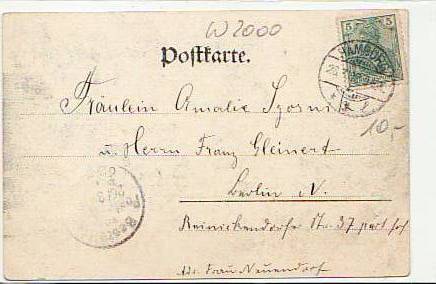 W 2000
Postkarte.
5 5
HAMBURG
Fräulein Amalie Szorni
10.-
u. Herrn Franz Gleinert
Berlin N.
Reinickendorfer Str. 37 part hof
Adr. Frau Neuendorf